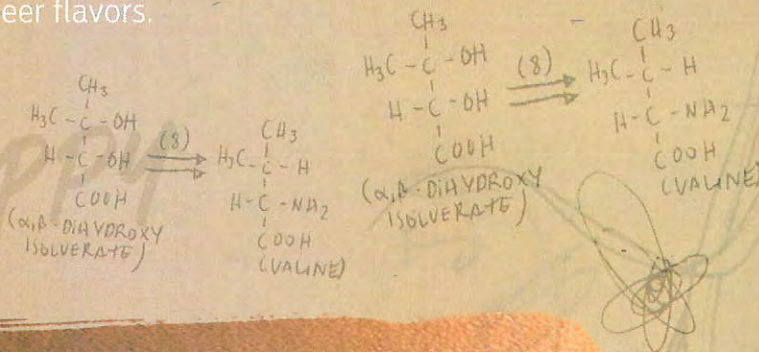 eer flavors.
CH3
H3C - C - OH
H - C - OH
COOH
(α,β-DIHYDROXY
ISOLVERATE)
(8)
CH3
H3C - C - H
H - C - NH2
COOH
(VALINE)
CH3
H3C - C - OH
H - C - OH
COOH
(α,β-DIHYDROXY
ISOLVERATE)
(8)
CH3
H3C - C - H
H - C - NH2
COOH
(VALINE)
PPY